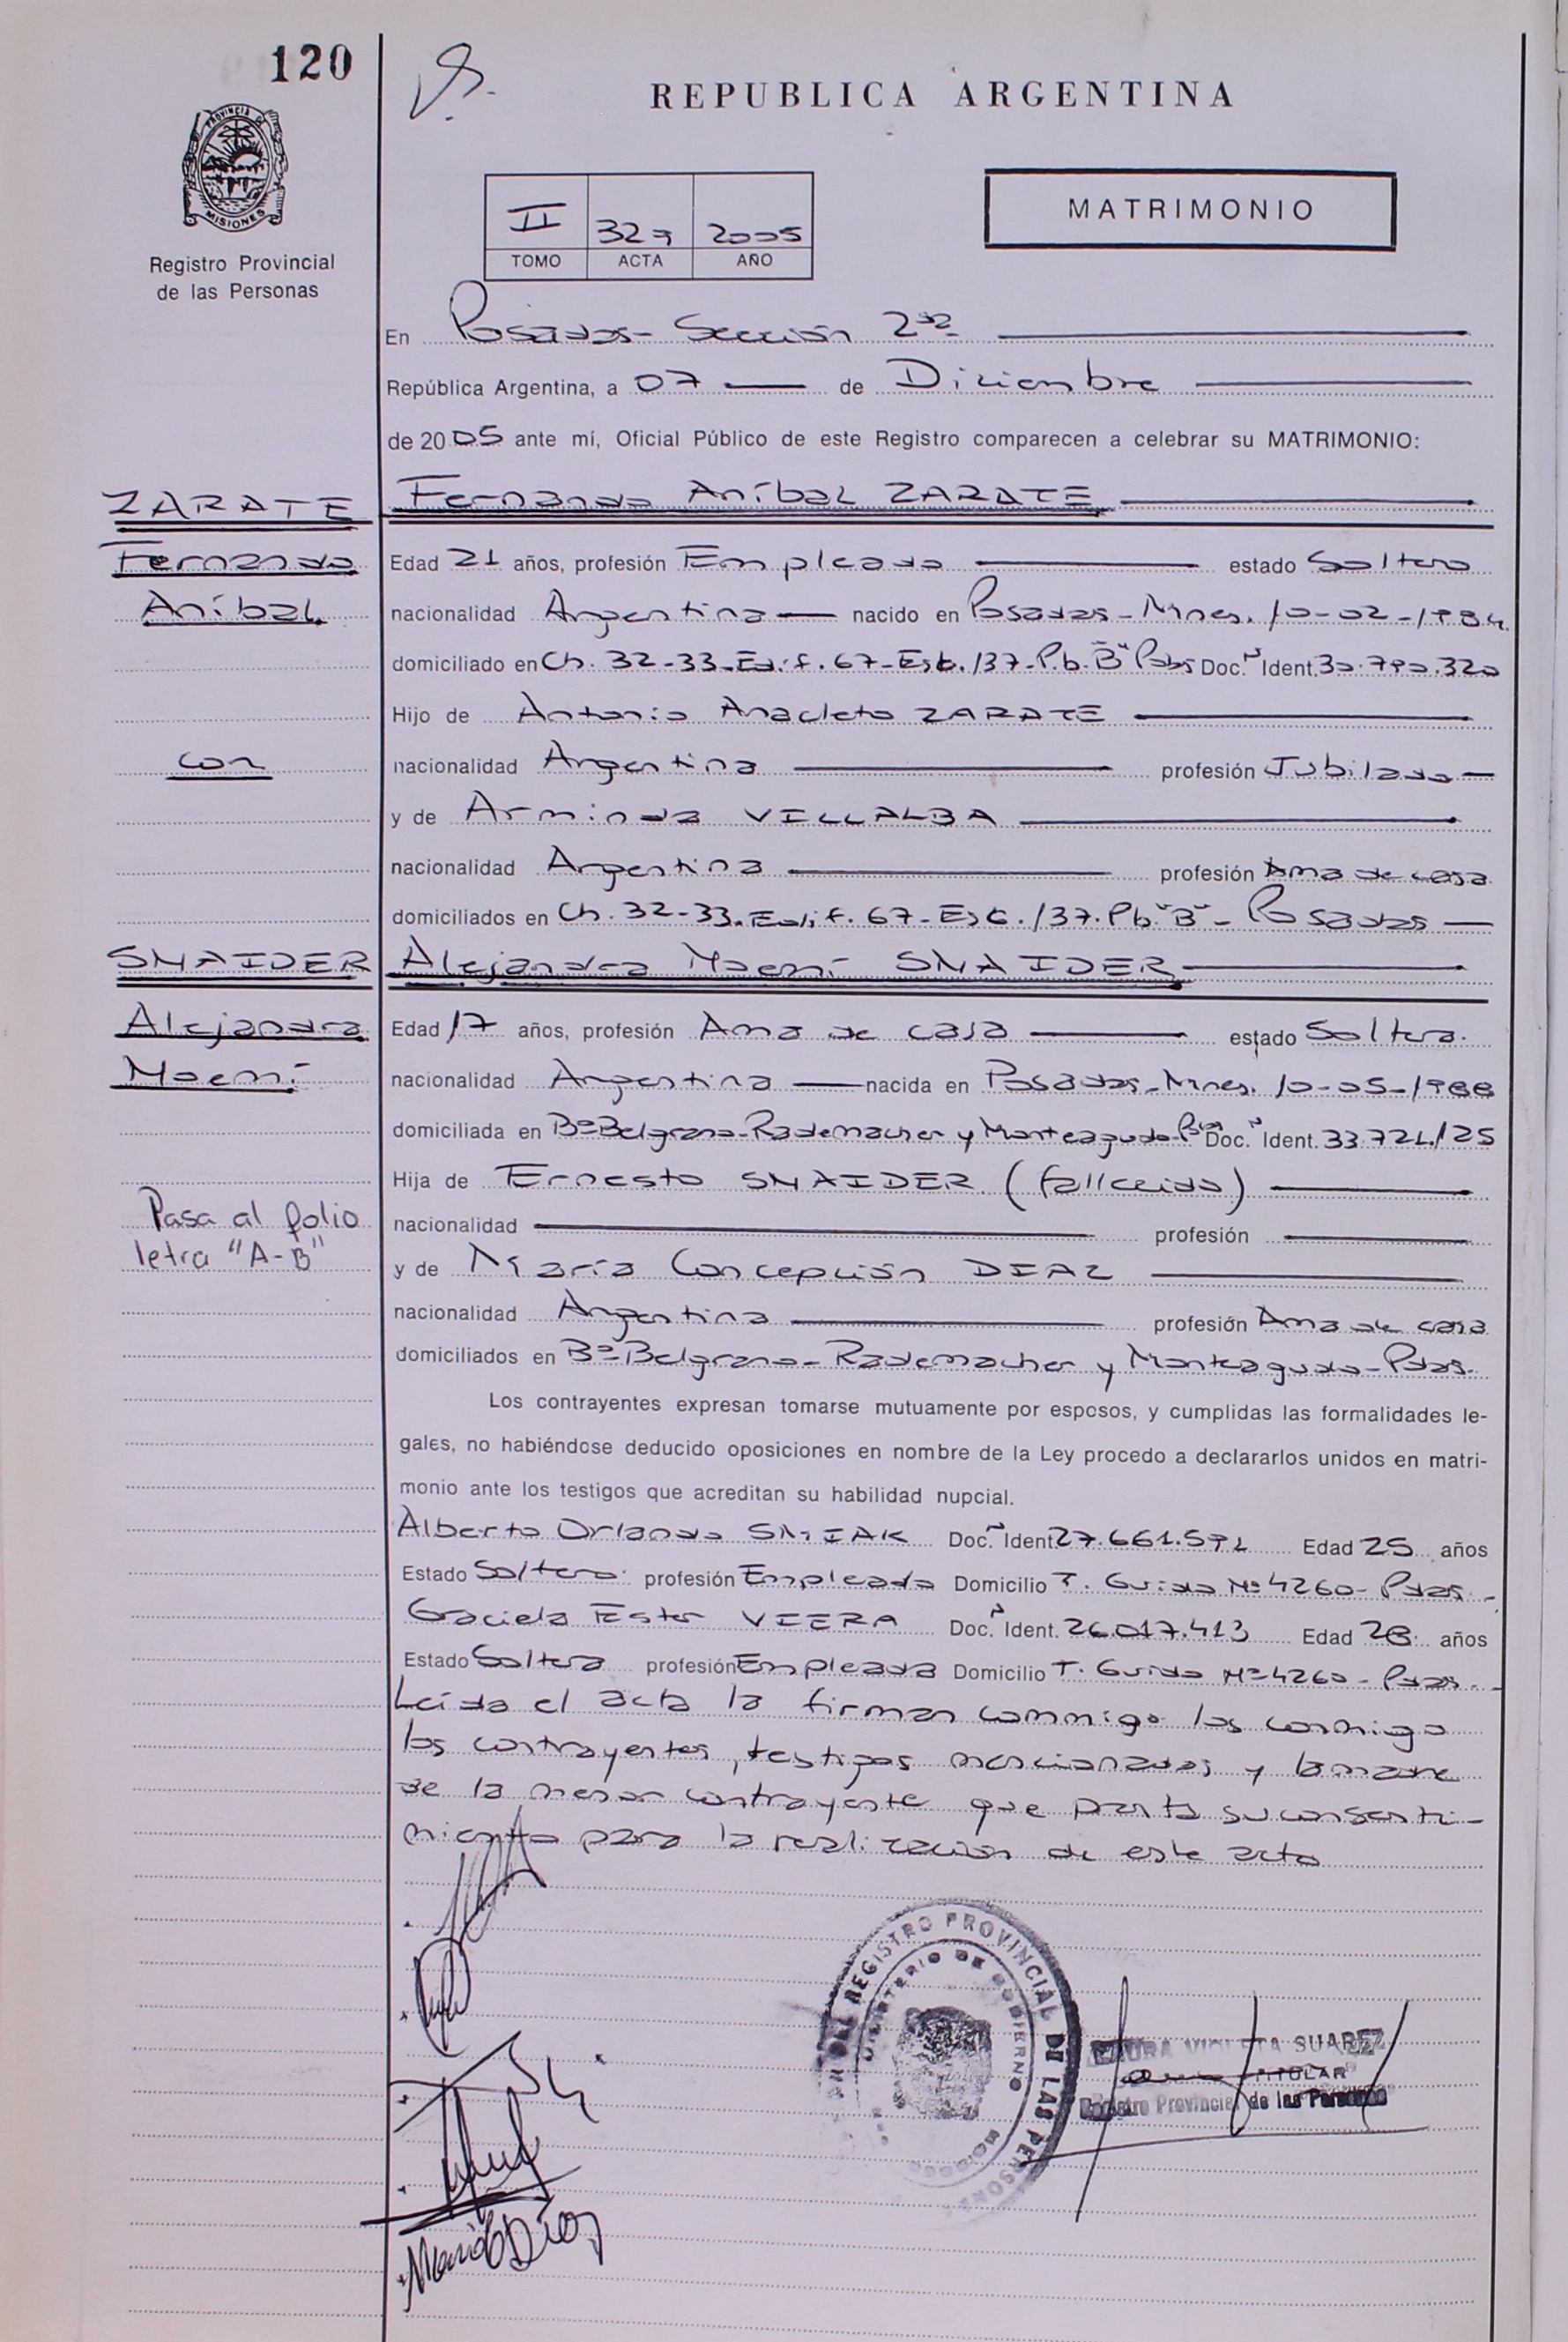 120
REPUBLICA ARGENTINA
PROVINCIA DE
MISIONES
Registro Provincial
de las Personas
II 329 2005
TOMO ACTA AÑO
MATRIMONIO
En Posadas- Sección 2da
República Argentina, a 07 de Diciembre
de 2005 ante mí, Oficial Público de este Registro comparecen a celebrar su MATRIMONIO:
ZARATE
Fernando Aníbal ZARATE
Fernando
Edad 21 años, profesión Empleado estado Soltero
Aníbal
nacionalidad Argentina nacido en Posadas-Mnes. 10-02-1984.
domiciliado en Ch. 32-33-Edif. 67-Esc. 137-P.b."B" Doc. Ident. 30.790.320
Hijo de Antonio Anacleto ZARATE
con
nacionalidad Argentina profesión Jubilado
y de Arminda VILLALBA
nacionalidad Argentina profesión Ama de casa
domiciliados en Ch. 32-33-Edif. 67-Esc. 137-Pb."B"- Posadas
SNAIDER
Alejandra Noemí SNAIDER
Alejandra
Edad 17 años, profesión Ama de casa estado Soltera.
Noemí
nacionalidad Argentina nacida en Posadas-Mnes. 10-05-1988
domiciliada en Bº Belgrano-Rademacher y Monteagudo- Doc. Ident. 33.724.125
Hija de Ernesto SNAIDER (fallecido)
Pasa al folio
letra "A-B"
nacionalidad profesión
y de María Concepción DIAZ
nacionalidad Argentina profesión Ama de casa
domiciliados en Bº Belgrano-Rademacher y Monteagudo-Pdas.
Los contrayentes expresan tomarse mutuamente por esposos, y cumplidas las formalidades le-
gales, no habiéndose deducido oposiciones en nombre de la Ley procedo a declararlos unidos en matri-
monio ante los testigos que acreditan su habilidad nupcial.
Alberto Orlando Doc. Ident. 27.661.592 Edad 25 años
Estado Soltero profesión Empleado Domicilio T. Guido Nº 4260- Pdas.-
Graciela Ester VIERA Doc. Ident. 26.017.413 Edad 28 años
Estado Soltera profesión Empleada Domicilio T. Guido Nº 4260- Pdas.-
Leída el acta la firman conmigo los conmigo
los contrayentes, testigos mencionados y la madre
de la menor contrayente que presta su consenti-
miento para la realización de este acto
REGISTRO PROVINCIAL DE LAS PERSONAS
MINISTERIO DE GOBIERNO
LAURA VIOLETA SUAREZ
TITULAR
Registro Provincial de las Personas
María C Díaz